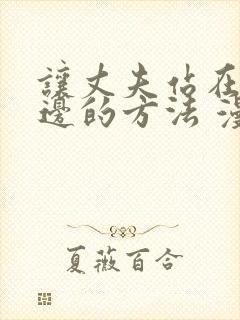 讓丈夫佔在
邊的方法
夏薇百合